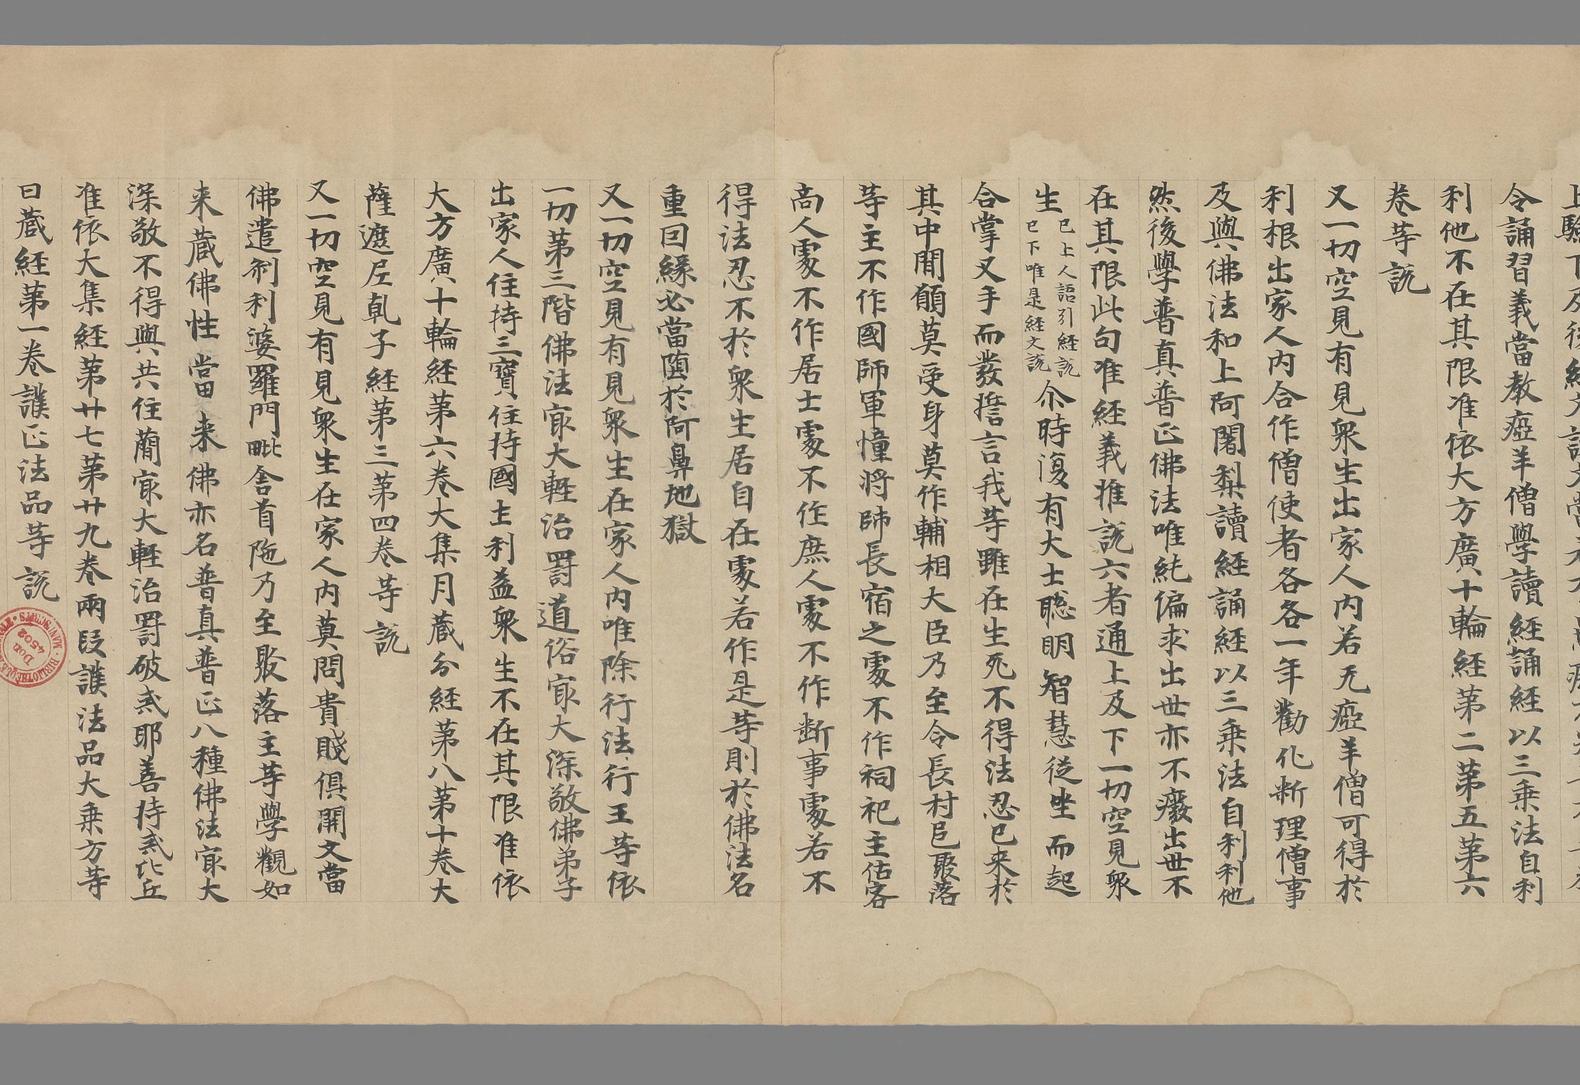 令誦習義當教瘂羊僧學讀經誦經以三乗法自利
利他不在其限准依大方廣十輪經第二第五第六
卷等說
又一切空見有見衆生出家人内若无瘂羊僧可得於
利根出家人内合作僧使者各各一年勸化斷理僧事
及與佛法和上阿闍梨讀經誦經以三乗法自利利他
然後學普真普正佛法唯純偏求出世亦不癈出世不
在其限此句准經義推說六者通上及下一切空見衆
生已上人語引經說已下唯是經文說尒時復有大士聡明智慧従坐而起
合掌叉手而發誓言我等雖在生死不得法忍已来於
其中間願莫受身莫作輔相大臣乃至令長村邑聚落
等主不作國師軍幢將師長宿之䖏不作祠祀主估客
高人䖏不作居士䖏不作庶人䖏不作断事䖏若不
得法忍不於衆生居自在䖏若作是等則於佛法名
重回緣必當墮於阿鼻地獄
又一切空見有見衆生在家人内唯除行法行王等依
一切第三階佛法㝡大輕治罰道俗㝡大深敬佛弟子
出家人住持三寶住持國主利益衆生不在其限准依
大方廣十輪經第六卷大集月藏分經第八第十卷大
薩遮尼乹子經第三第四卷等說
又一切空見有見衆生在家人内莫問貴賤俱開文當
佛遣刹利婆羅門毗舍首陁乃至聚落主等學觀如
来藏佛性當来佛亦名普真普正八種佛法㝡大
深敬不得與共住蕳㝡大輕治罰破戒耶善持戒比丘
准依大集經第廿七第廿九卷兩段護法品大乗方等
日藏經第一卷護正法品等說